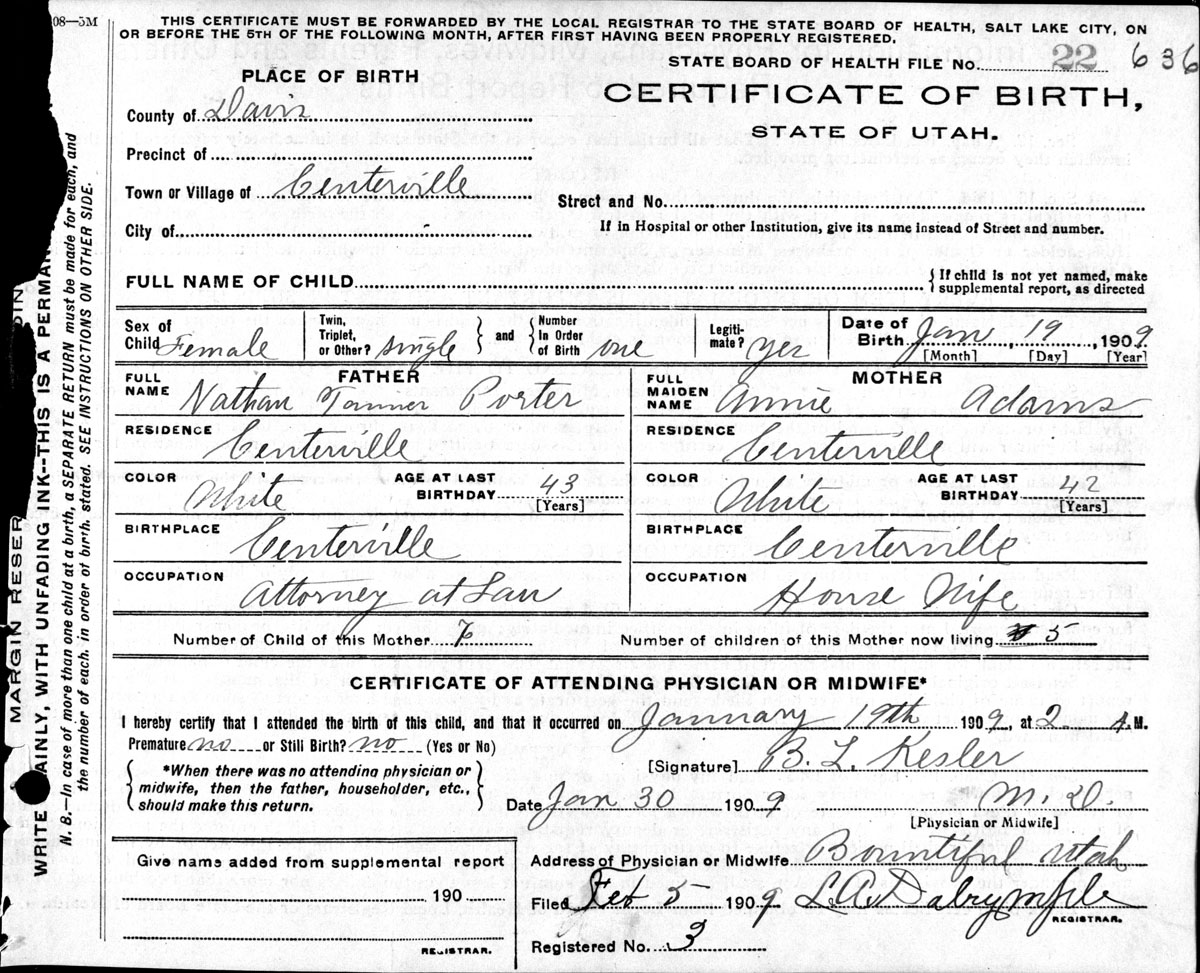 08—5M
THIS CERTIFICATE MUST BE FORWARDED BY THE LOCAL REGISTRAR TO THE STATE BOARD OF HEALTH, SALT LAKE CITY, ON
OR BEFORE THE 5TH OF THE FOLLOWING MONTH, AFTER FIRST HAVING BEEN PROPERLY REGISTERED.
STATE BOARD OF HEALTH FILE No. 22 636
PLACE OF BIRTH
CERTIFICATE OF BIRTH,
STATE OF UTAH.
County of Davis
Precinct of
Town or Village of Centerville
Street and No.
City of
If in Hospital or other Institution, give its name instead of Street and number.
FULL NAME OF CHILD
{ If child is not yet named, make
supplemental report, as directed
Sex of Child Female
Twin, Triplet, or Other? single } and { Number In Order of Birth one
Legiti-mate? yes
Date of Birth Jan, 19, 1909
[Month] [Day] [Year]
FATHER
FULL NAME Nathan Tanner Porter
RESIDENCE
Centerville
COLOR White AGE AT LAST BIRTHDAY 43
[Years]
BIRTHPLACE
Centerville
OCCUPATION
Attorney at Law
MOTHER
FULL MAIDEN NAME Annie Adams
RESIDENCE
Centerville
COLOR White AGE AT LAST BIRTHDAY 42
[Years]
BIRTHPLACE
Centerville
OCCUPATION
House Wife
Number of Child of this Mother 7 Number of children of this Mother now living 5
CERTIFICATE OF ATTENDING PHYSICIAN OR MIDWIFE*
I hereby certify that I attended the birth of this child, and that it occurred on January 19th 1909, at 2 A.M.
Premature no or Still Birth? no (Yes or No)
[Signature] B. L. Kesler
{ *When there was no attending physician or
midwife, then the father, householder, etc.,
should make this return. }
Date Jan 30 1909 M.D.
[Physician or Midwife]
Give name added from supplemental report
190
REGISTRAR.
Address of Physician or Midwife Bountiful Utah
Filed Feb 5 1909 L.A. Dalrymple
REGISTRAR.
Registered No. 3
MARGIN RESER
WRITE AINLY, WITH UNFADING INK--THIS IS A PERMAN
N. B.—In case of more than one child at a birth, a SEPARATE RETURN must be made for each, and
the number of each, in order of birth, stated. SEE INSTRUCTIONS ON OTHER SIDE.